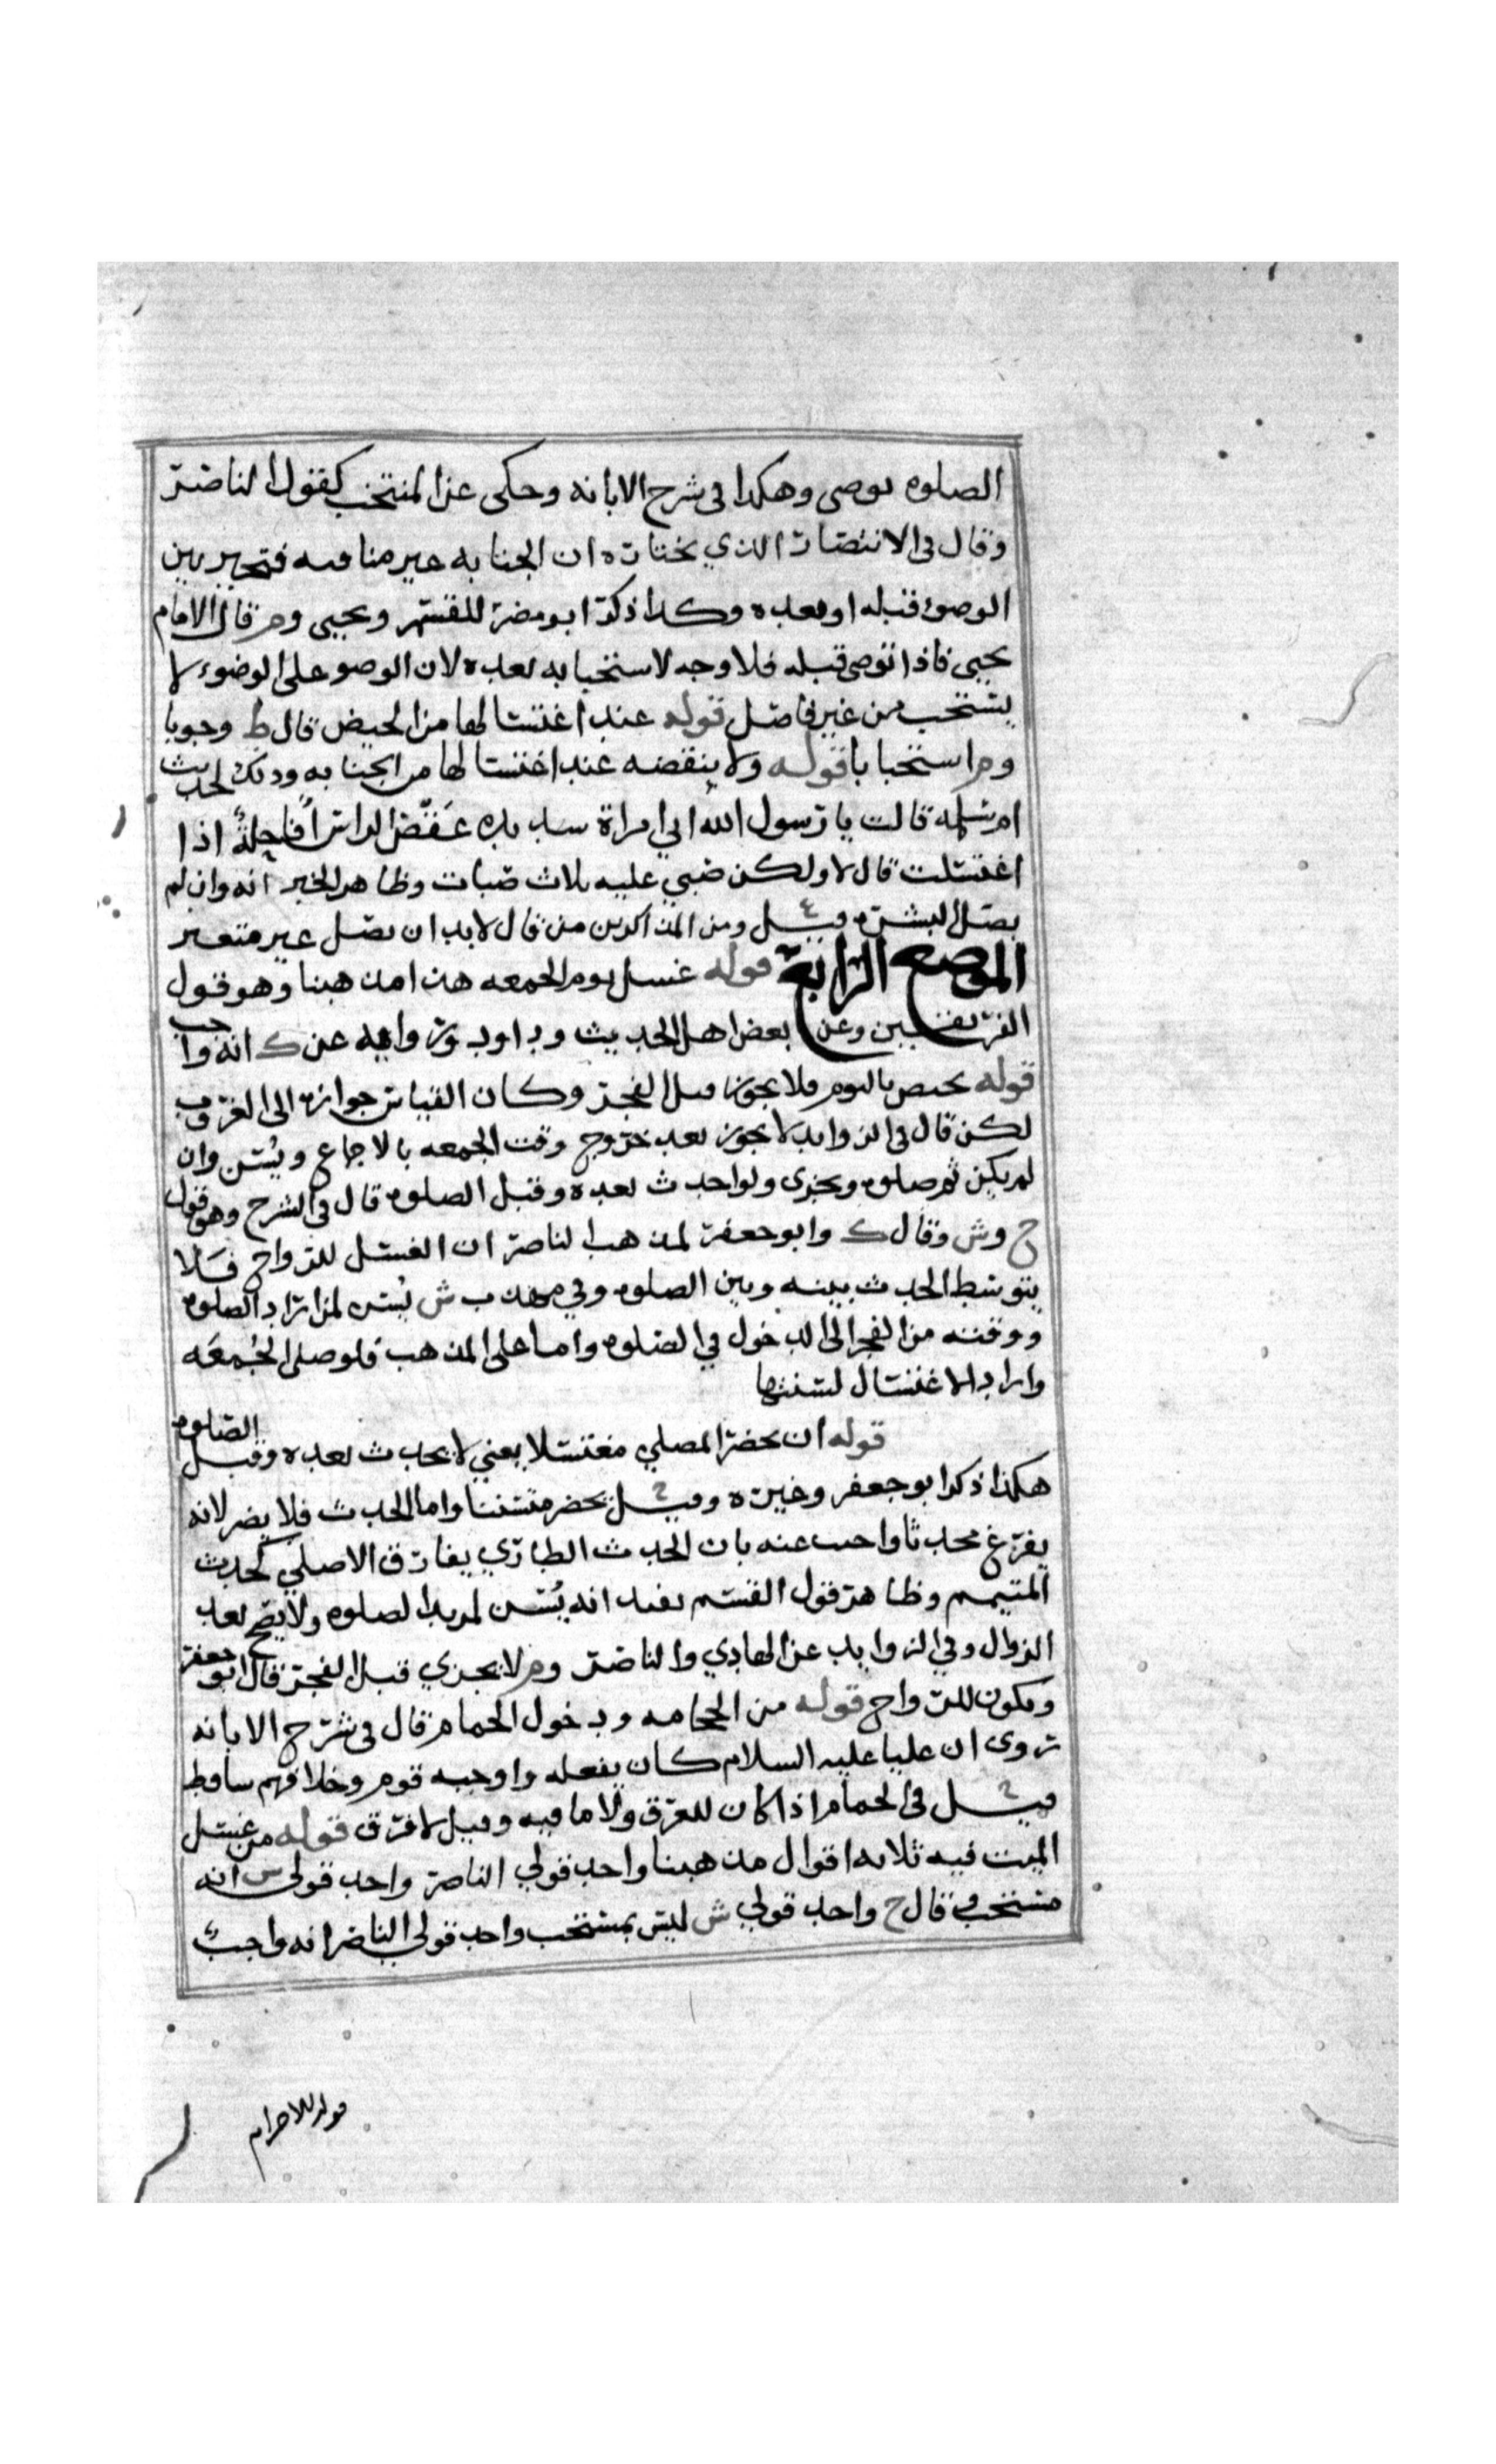 الصلوه توضى وهكذا فى شرح الابانه وحكى عن المنتخب كقول الناصر
وقال فى الانتصار الذي نختاره ان الجنابه غير منافيه فتخير بين
الوضوء قبله او بعده وكذا ذكر ابو مضر للقسم ويحيى وم قال الامام
يحيى فاذا توضى قبله فلا وجه لاستحبابه بعده لان الوضو على الوضوء لا
يستحب من غير فاصل قوله عند اغتسالها من الحيض قال ط وجوبا
وم استحبابا قوله ولا ينقضه عند اغتسالها من الجنابه وذلك لحديث
ام سلمه قالت يا رسول الله اني امراة شديده عقص الراس افاحله اذا
اغتسلت قال لا ولكن صبي عليه ثلاث صبات وظاهر الخبر انه وان لم
يصل البشره قيل ومن المذاكرين من قال لا بد ان يصل غير متغير
الموضع الرابع قوله غسل يوم الجمعه هذا مذهبنا وهو قول
الفريقين وعن بعض اهل الحديث وداود وروايه عن ك انه واجب
قوله يختص باليوم فلا يجوز قبل الفجر وكان القياس جوازه الى الغروب
لكن قال فى الزوايد لا يجوز بعد خروج وقت الجمعه بالاجماع ويسن وان
لم يكن ثم صلوه ويجزى ولو احدث بعده وقبل الصلوه قال فى الشرح وهو قول
ح وش وقال ك وابو جعفر لمذهب الناصر ان الغسل للرواح فلا
يتوسط الحدث بينه وبين الصلوه وفي مهذب ش يسن لمن اراد الصلوه
ووقته من الفجر الى الدخول في الصلوه واما على المذهب فلو صلى الجمعه
واراد الاغتسال لسنتها
قوله ان يحضر المصلي مغتسلا يعني لا يحدث بعده وقبل الصلوه
هكذا ذكر ابو جعفر وغيره وقيل يحضر متسننا واما الحدث فلا يضر لانه
يفرغ محدثا واجيب عنه بان الحدث الطاري يفارق الاصلي كحدث
المتيمم وظاهر قول القسم يفيد انه يسن لمريد الصلوه ولا يصح بعد
الزوال وفي الزوايد عن الهادي والناصر وم لا يجزي قبل الفجر قال ابو جعفر
ويكون للرواح قوله من الحجامه ودخول الحمام قال فى شرح الابانه
روى ان عليا عليه السلام كان يفعله واوجبه قوم وخلافهم ساقط
قيل فى الحمام اذا كان للعرق والا ما فيه وقيل لا فرق قوله من غسل
الميت فيه ثلاثه اقوال مذهبنا واحد قولي الناصر واحد قولى ش انه
مستحب وقال ح واحد قولي ش ليس بمستحب واحد قولي الناصر انه واجب
قوله للاحرام